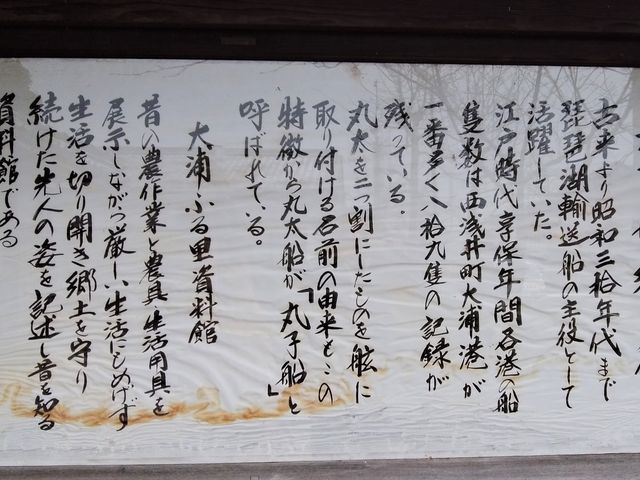 古来より昭和三拾年代まで
琵琶湖輸送船の主役として
活躍していた。
江戸時代享保年間各港の船
隻数は西浅井町大浦港が
一番多く八拾九隻の記録が
残っている。
丸太を二つ割にしたものを舷に
取り付ける名前の由来もこの
特徴から丸太船が「丸子船」と
呼ばれている。
大浦ふる里資料館
昔の農作業と農具生活用具を
展示しながら厳しい生活にもめげず
生活を切り開き郷土を守り
続けた先人の姿を記述し昔を知る
資料館である